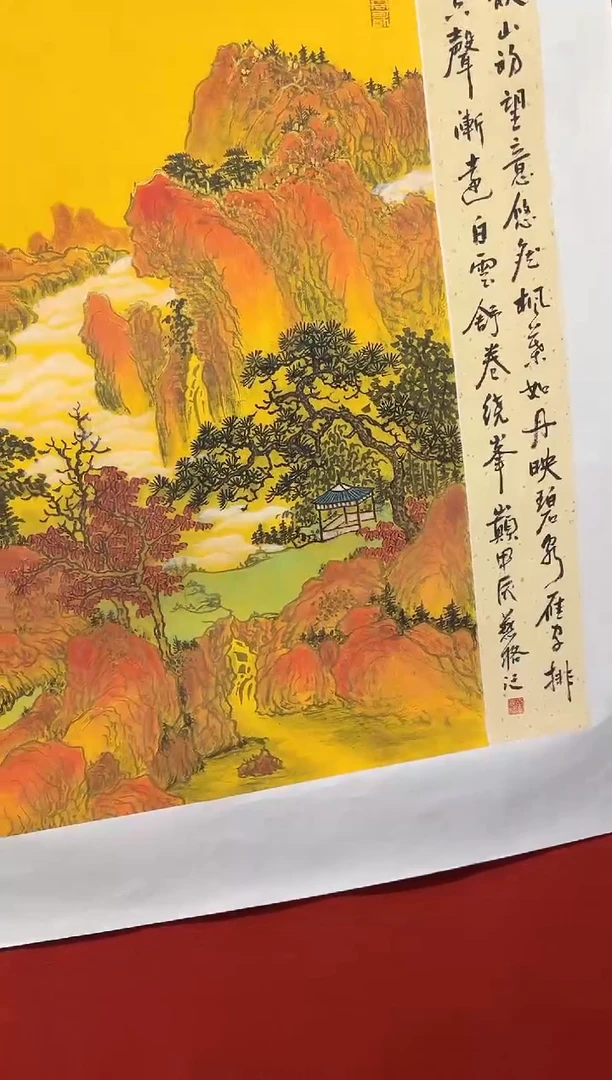 山初望意悠然枫葉如丹映碧泉雁字排
聲漸遠白雲舒卷绕峯巔甲辰